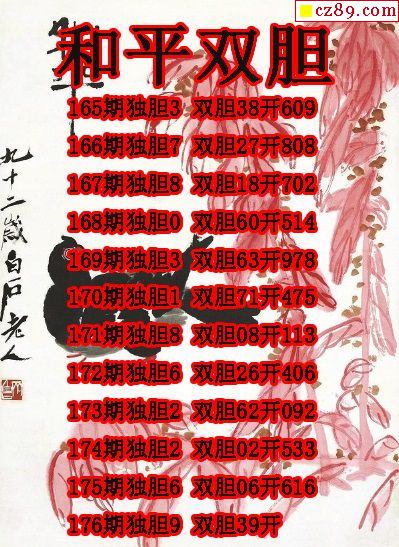 cz89.com
和平双胆
165期独胆3 双胆38开609
166期独胆7 双胆27开808
167期独胆8 双胆18开702
168期独胆0 双胆60开514
169期独胆3 双胆63开978
170期独胆1 双胆71开475
171期独胆8 双胆08开113
172期独胆6 双胆26开406
173期独胆2 双胆62开092
174期独胆2 双胆02开533
175期独胆6 双胆06开616
176期独胆9 双胆39开
九十二岁白石老人